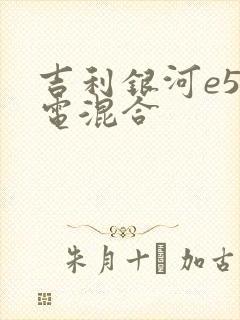 吉利銀河e5
電混合
朱月十 加古